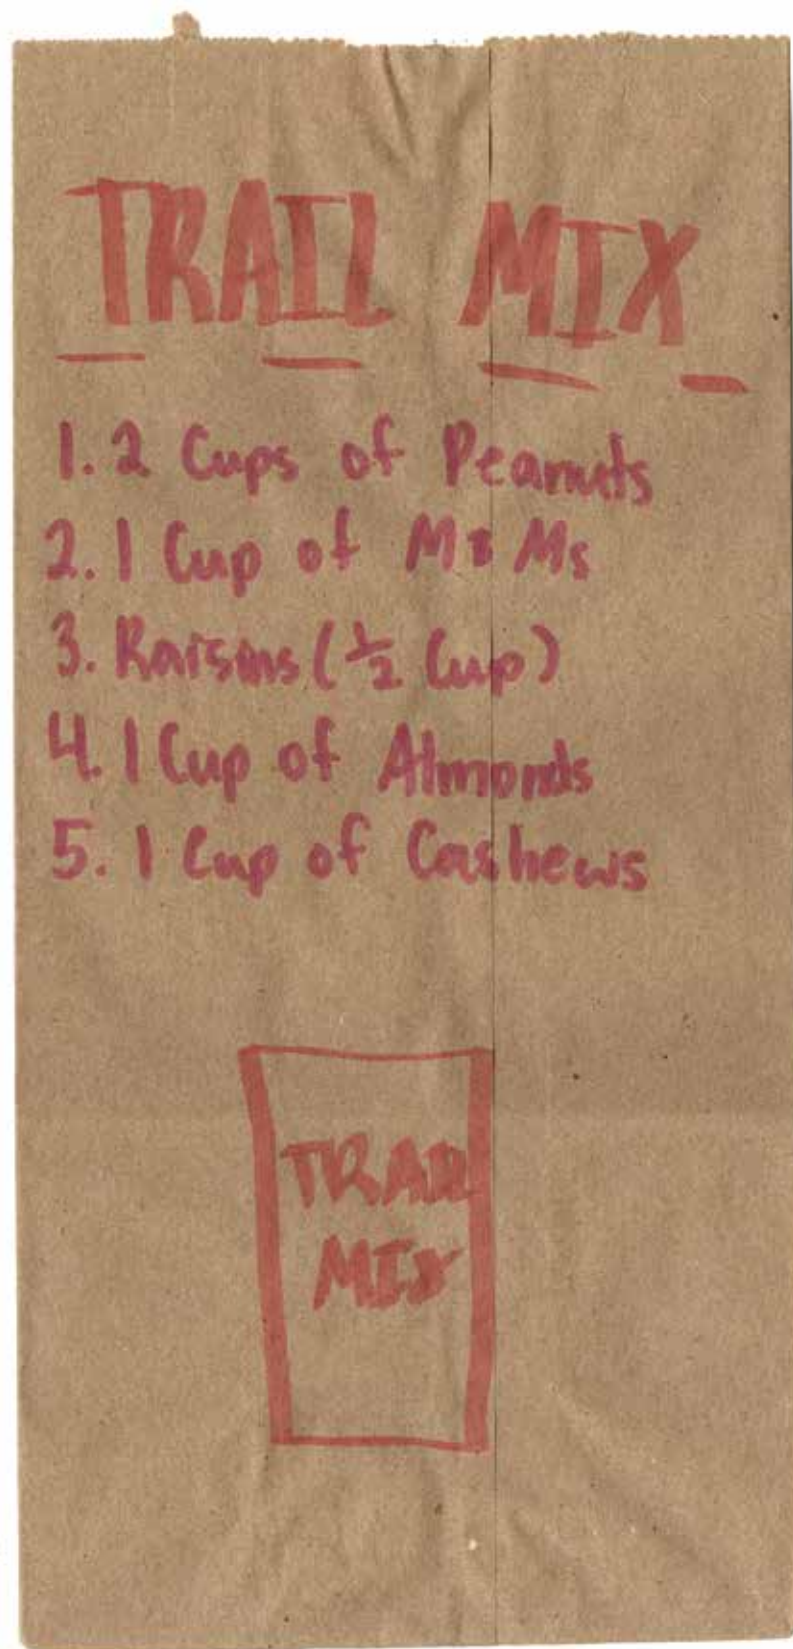 TRAIL MIX
1. 2 Cups of Peanuts
2. 1 Cup of M&Ms
3. Raisins (½ Cup)
4. 1 Cup of Almonds
5. 1 Cup of Cashews
TRAIL
MIX